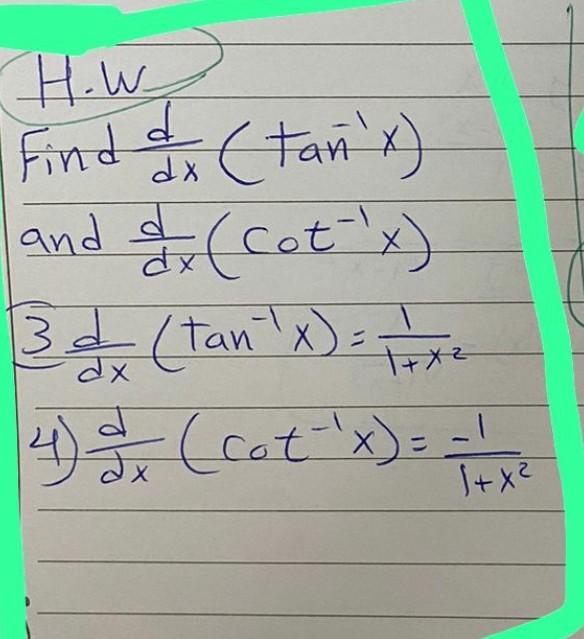 H.W
Find d/dx (tan⁻¹x)
and d/dx (cot⁻¹x)
3 d/dx (tan⁻¹x) = 1/1+x²
4) d/dx (cot⁻¹x) = -1/1+x²